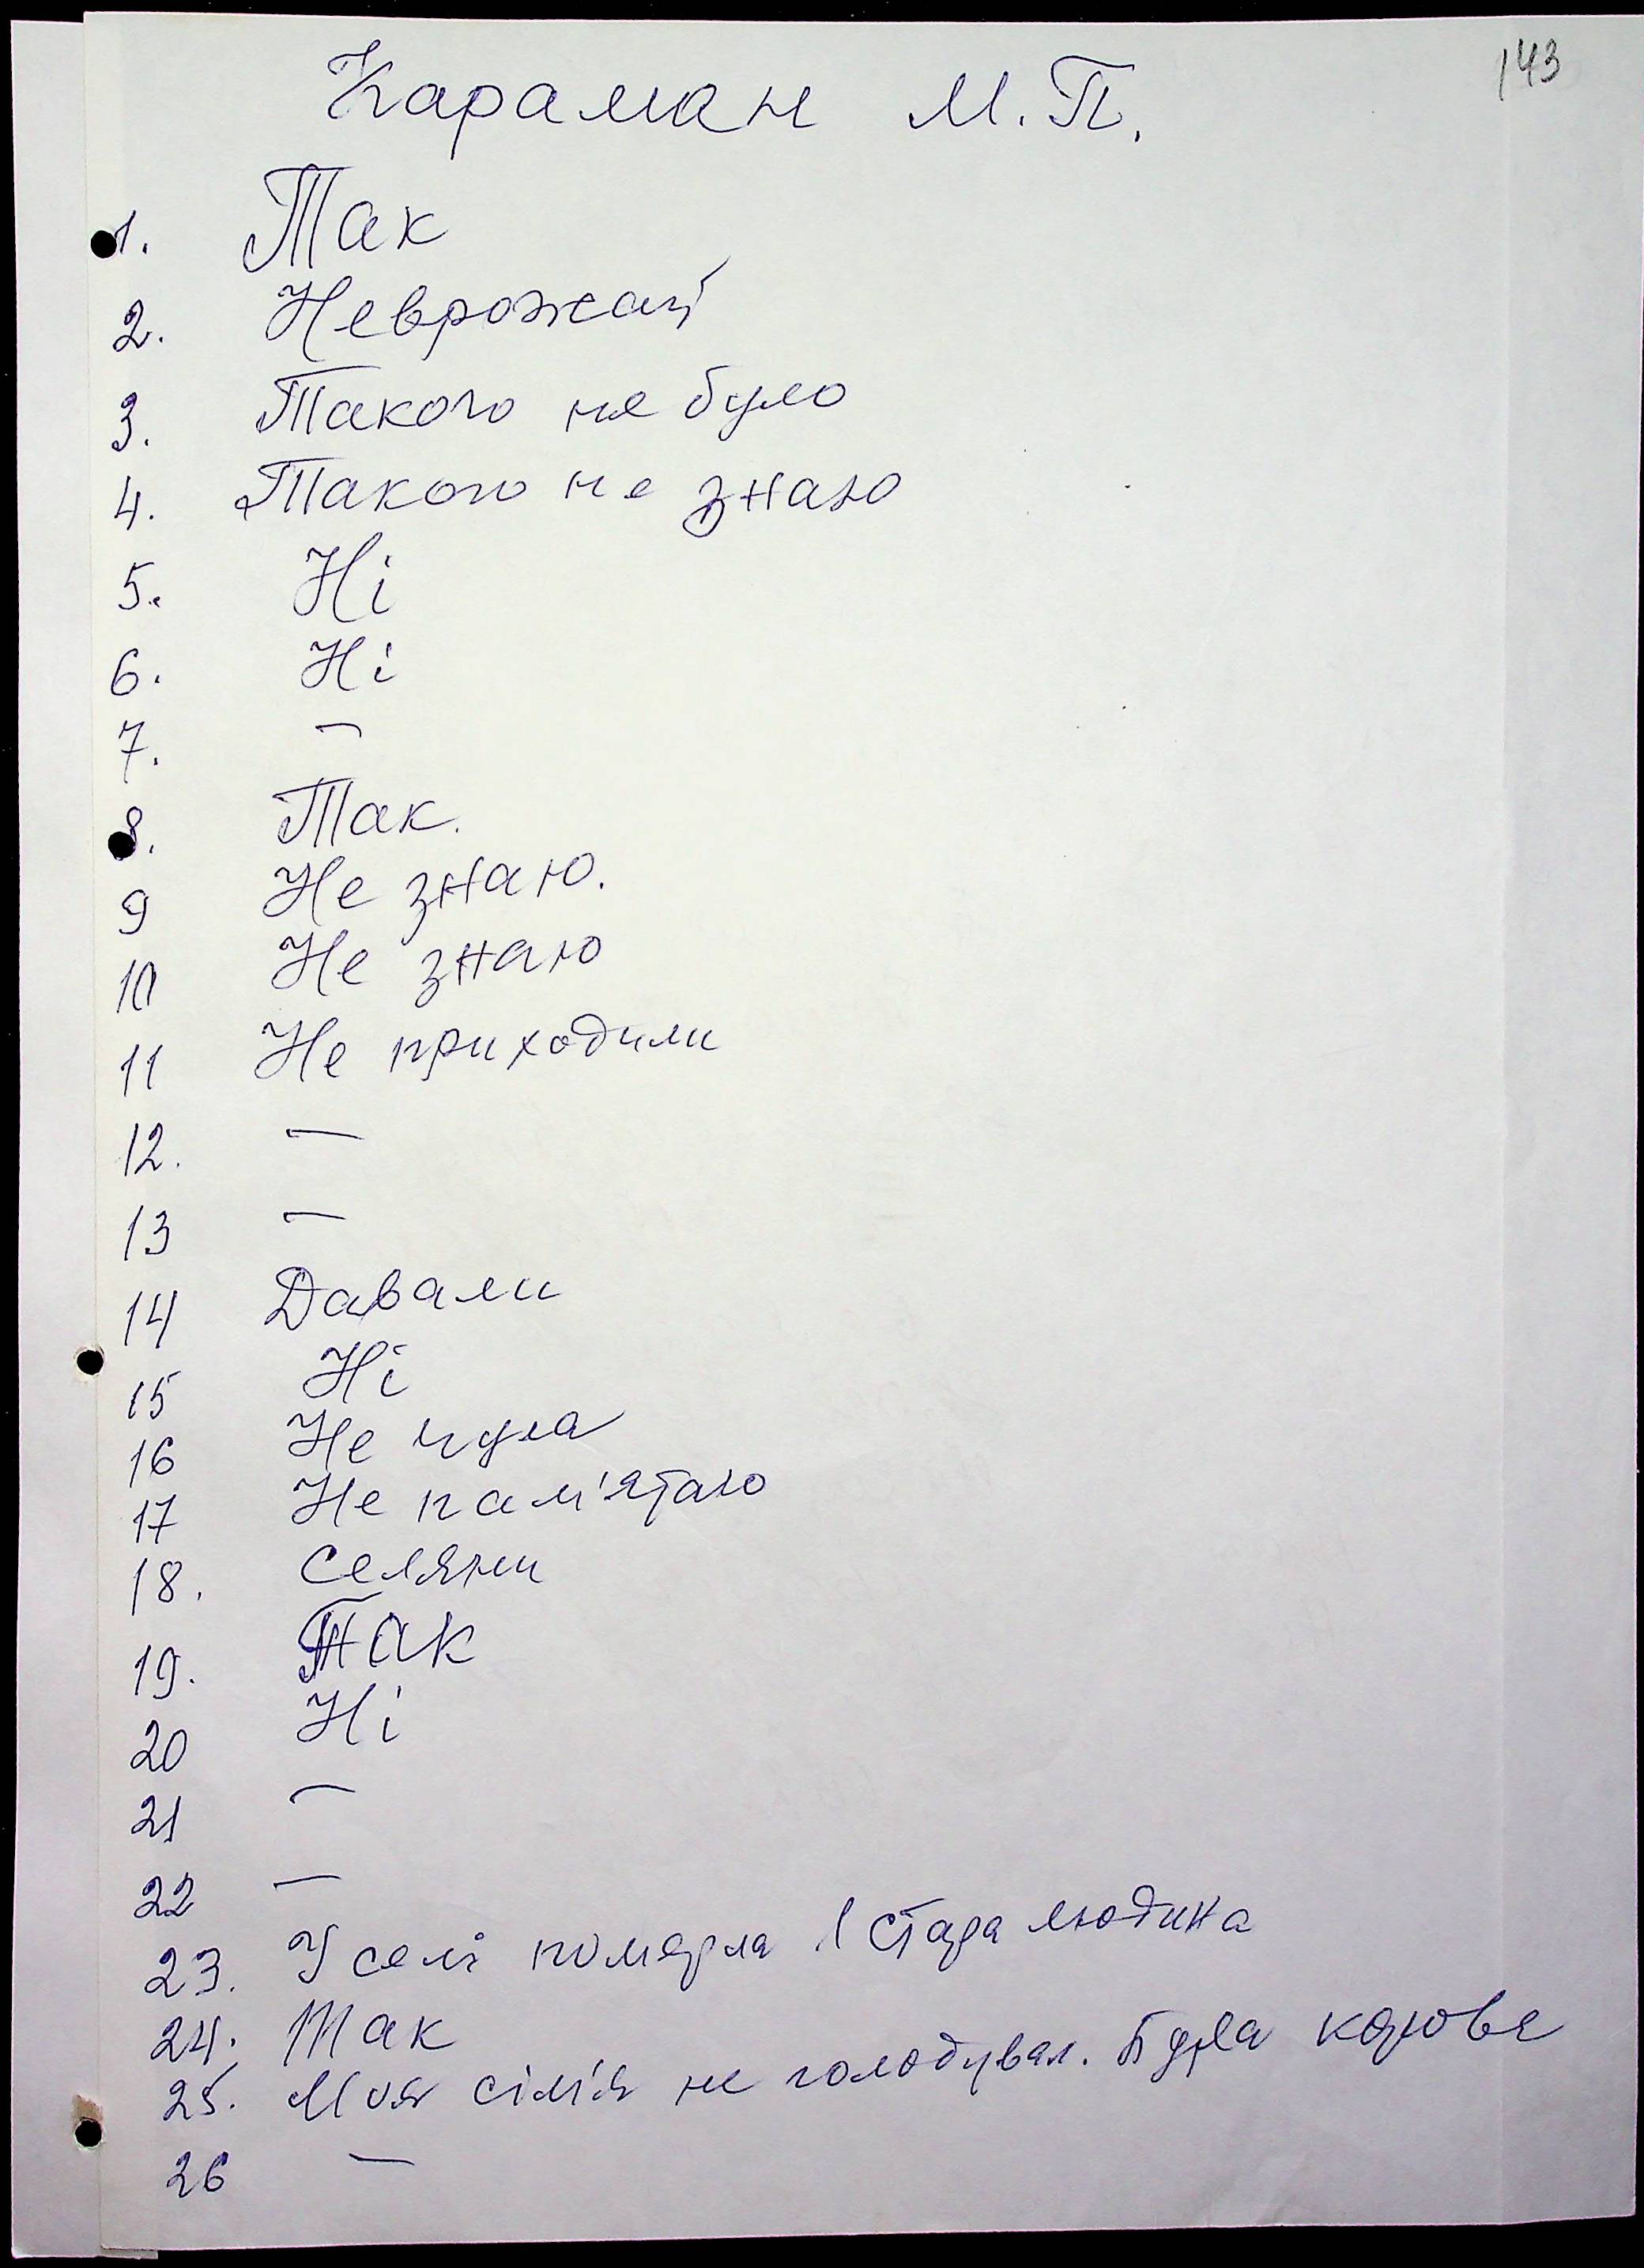 143
Караман М.П.
1. Так
2. Неврожай
3. Такого не було
4. Такого не знаю
5. Ні
6. Ні
7. –
8. Так.
9 Не знаю.
10 Не знаю
11 Не приходили
12. –
13 –
14 Давали
15 Ні
16 Не чула
17 Не пам'ятаю
18. Селяни
19. Так
20 Ні
21 –
22 –
23. У селі померла 1 стара людина
24. Так
25. Моя сім'я не голодувал. Була корова
26 –